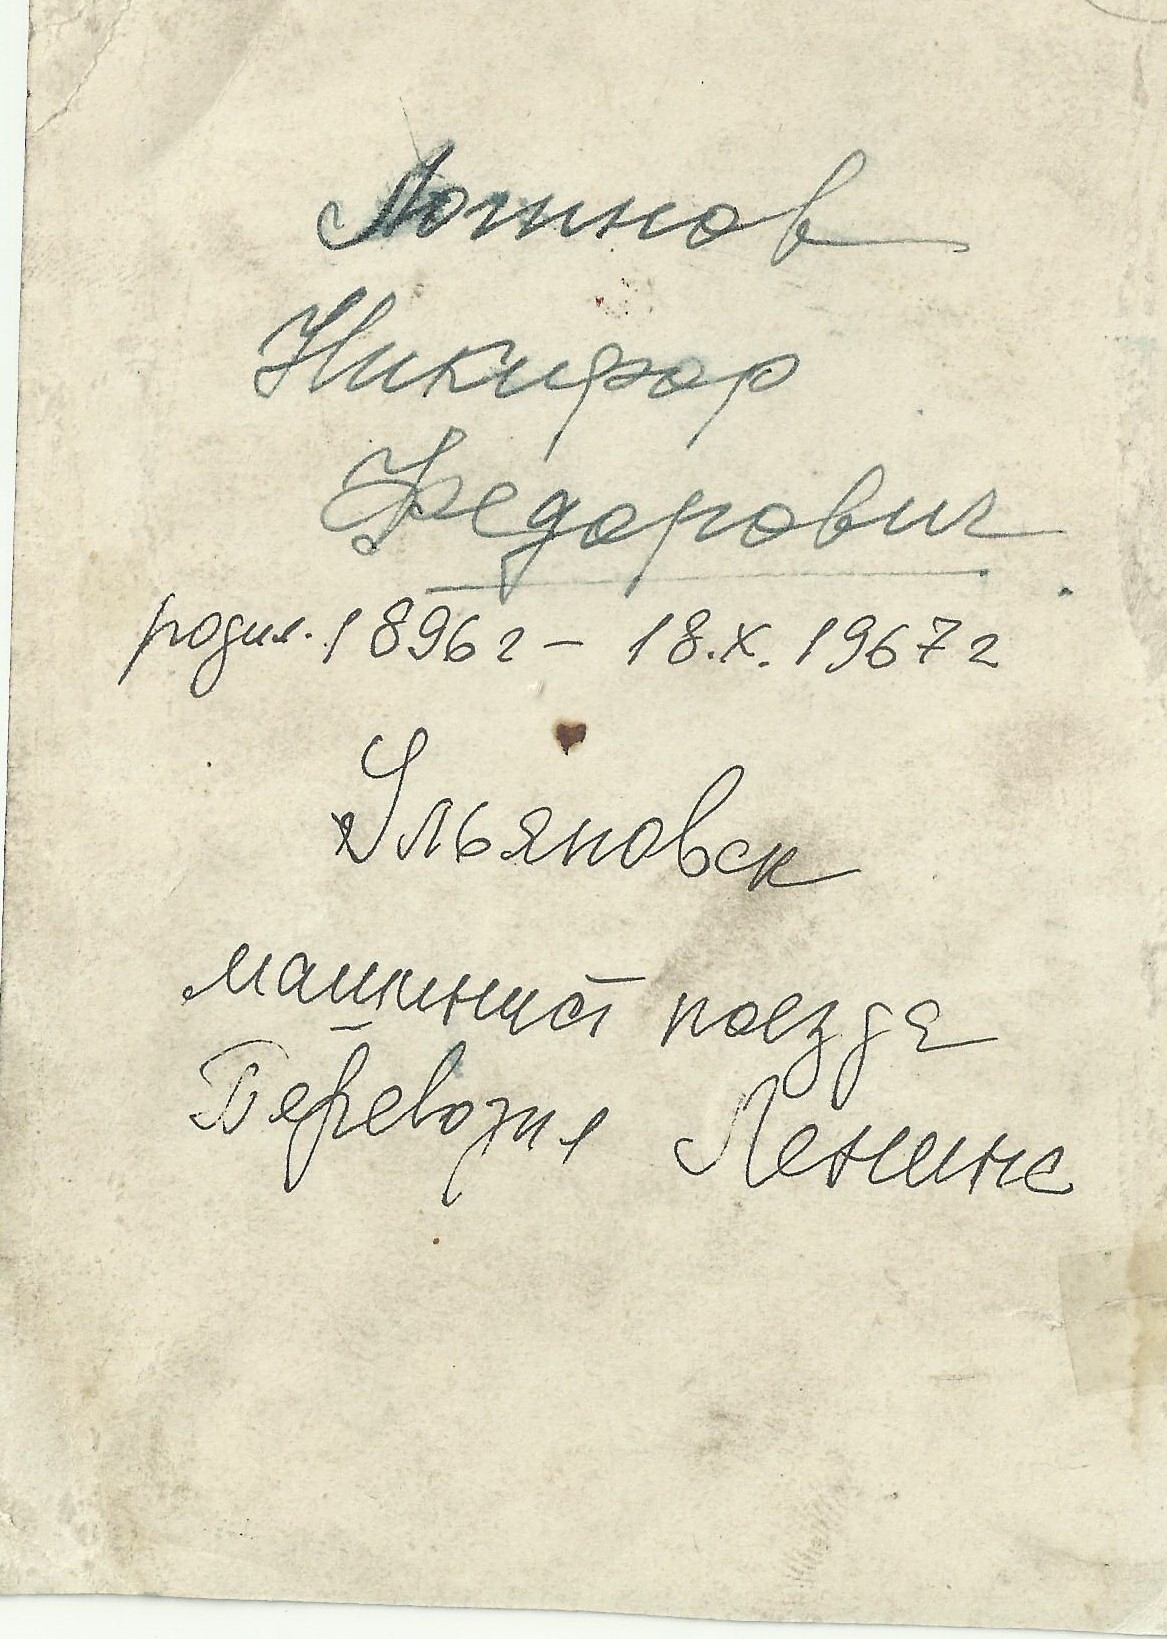 Логинов
Никифор
Федорович
родил. 1896 г – 18.X. 1967 г
Ульяновск
машинист поезда
Перевозил Ленина